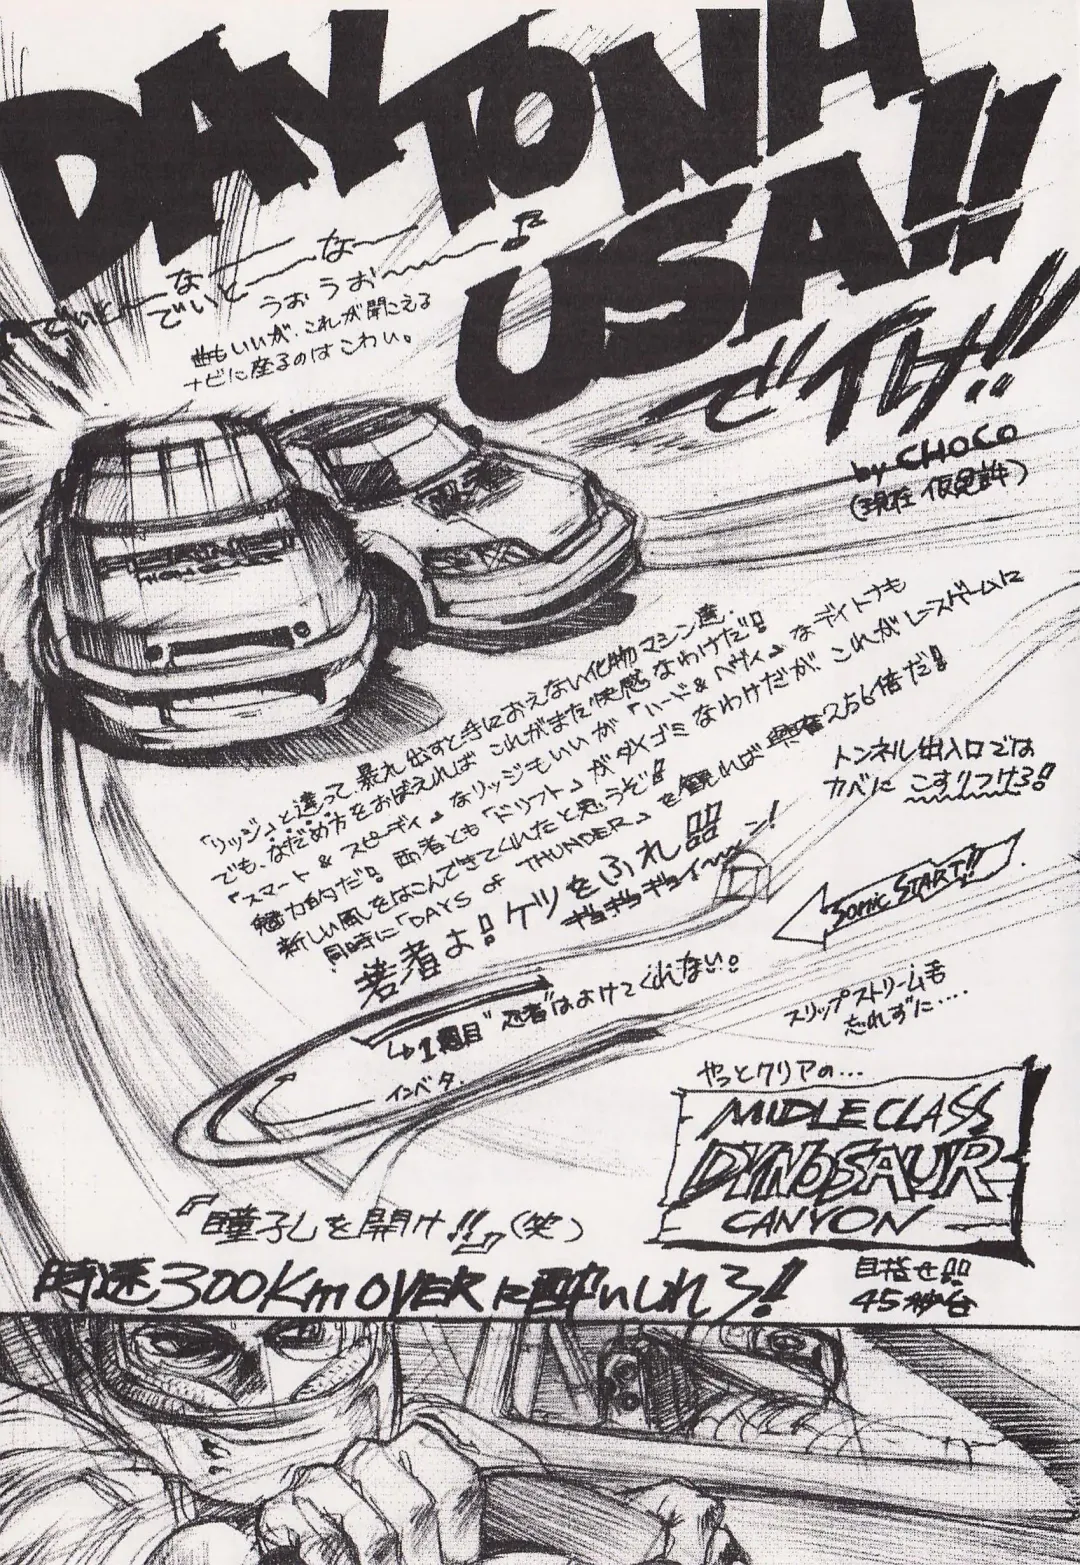 DAYTONA
USA!!
で行け!!
by CHOCO
(現在 仮免許)
でいとーなー
でいとーなー
うぉ うぉ〜〜♪
曲もいいが、これが聞こえる
ナビに座るのはこわい。
「リッジ」と違って、暴れ出すと手におえない化物マシン達。
でも、なだめ方をおぼえれば これがまた快感なわけだ!!
「スマート & スピーディ」なリッジもいいが「ハード & ヘヴィ」なデイトナも
魅力的だ!! 両者とも「ドリフト」がダイゴミなわけだが、これがレースゲームに
新しい風をはこんできてくれたと思うぞ!!
同時に「DAYS OF THUNDER」を観れば 興奮256倍だ!!
若者よ!! ケツをふれ!!!!
ギョギョギョイ〜〜ン!
トンネル出入口では
カベに こすりつけろ!!
SONIC START!!
スリップストリームも
忘れずに....
↳1週目"忍者"はよけてくれない。
インベタ.
やっとクリアの...
MIDLE CLASS
DYNOSAUR
CANYON
目指せ!!!!
45秒台
『瞳孔を開け!!』(笑)
時速300Km OVERに酔いしれろ!!